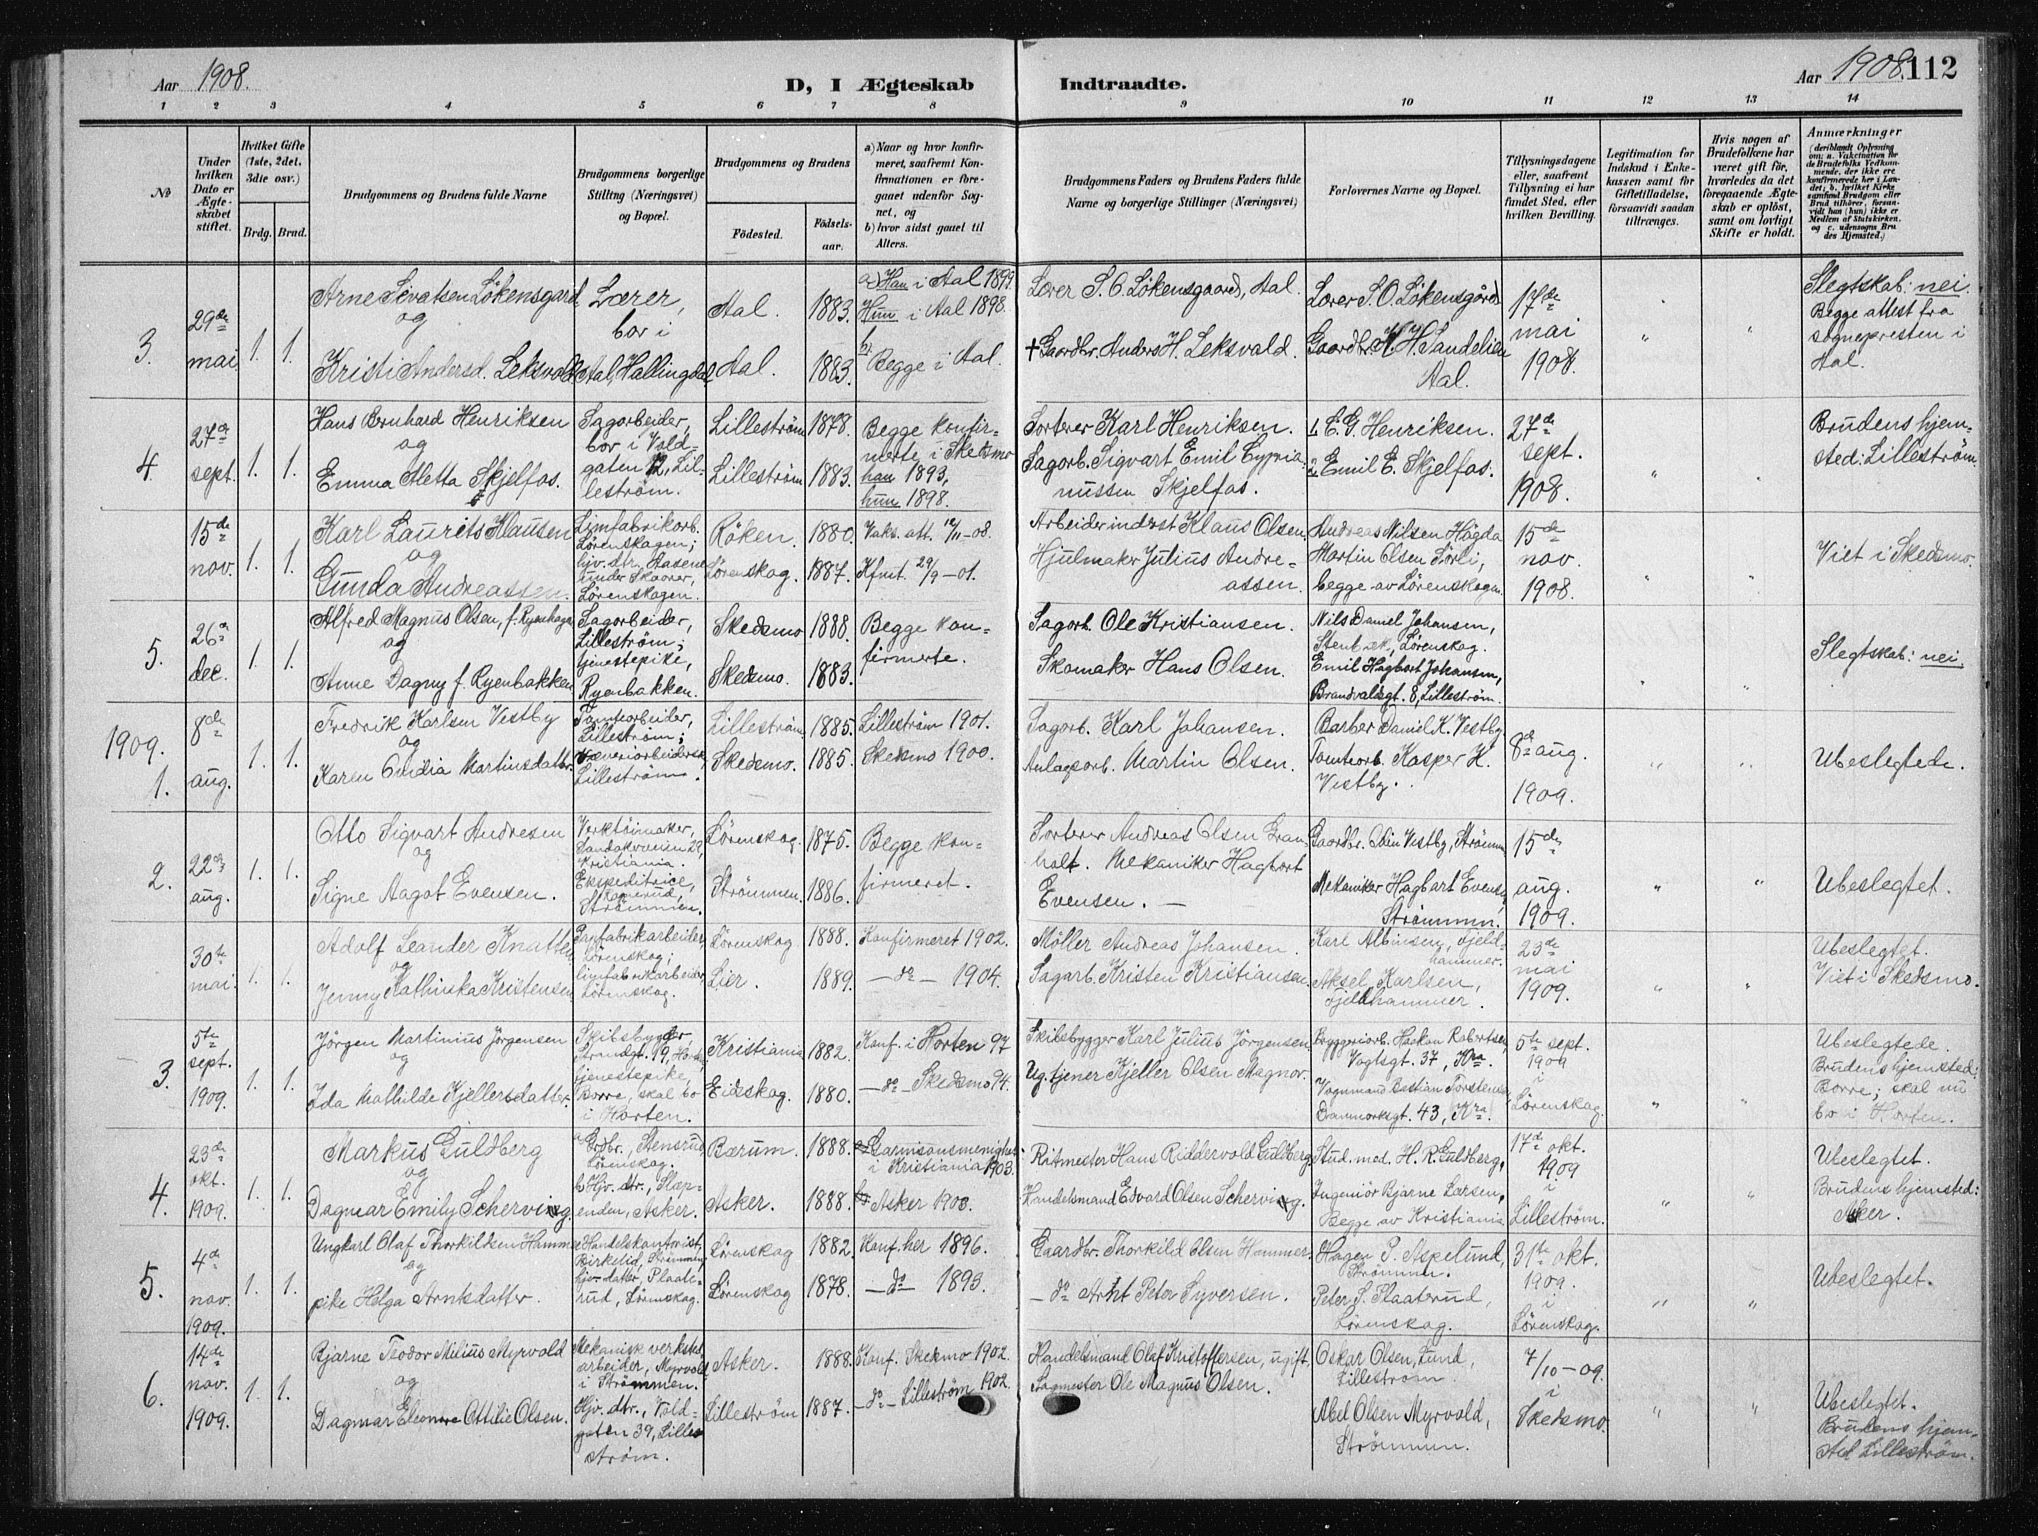 Aar 1908.
D, I Ægteskab Indtraadte.
Aar 1908. 112
1 2 3 4 5 6 7 8 9 10 11 12 13 14
№
Under hvilken Dato er Ægteskabet stiftet.
Hvilket Gifte (1ste, 2det, 3die osv.)
Brdg. Brud.
Brudgommens og Brudens fulde Navne
Brudgommens borgerlige Stilling (Næringsvei) og Bopæl.
Brudgommens og Brudens
Fødested. Fødselsaar.
a) Naar og hvor konfirmeret, saafremt Konfirmationen er foregaaet udenfor Sognet, og
b) hvor sidst gaaet til Alters.
Brudgommens Faders og Brudens Faders fulde Navne og borgerlige Stillinger (Næringsvei)
Forlovernes Navne og Bopæl.
Tillysningsdagene eller, saafremt Tillysning ei har fundet Sted, efter hvilken Bevilling.
Legitimation for Indskud i Enkekassen samt for Giftetilladelse, forsaavidt saadan tiltrænges.
Hvis nogen af Brudefolkene har været gift før, hvorledes da det foregaaende Ægteskab er opløst, samt om lovligt Skifte er holdt.
Anmærkninger
3. 29de mai 1. 1.
Arne Sivatsen Lökensgard
og
Kristi Andersd. Leksvold
Lærer,
bor i
Aal, Hallingdal
Aal. 1883.
Aal. 1883.
a) Han i Aal 1899.
Hun i Aal 1898.
b) Begge i Aal.
Lærer S. O. Lökensgaard, Aal.
+ Gaardbr. Anders H. Leksvald.
Lærer S. O. Lökensgård
Gaardbr. K. H. Sandelien
Aal.
17de
mai
1908.
" "
Slegtskab: nei.
Begge attest fra
sognepresten i
Aal.
4. 27de sept. 1. 1.
Hans Bernhard Henriksen
og
Emma Aletta Skjelfos.
Sagarbeider,
bor i Vold-
gaten 12, Lil-
leström.
Lilleström 1878.
Lilleström 1883.
Begge konfir-
merte i Skedsmo
han 1893,
hun 1898.
Sorterer Karl Henriksen.
Sagarb. Sigvart Emil Cypria-
nussen Skjelfos.
1. E. G. Henriksen.
2. Emil E. Skjelfos.
27de
sept.
1908.
" "
Brudens hjem-
sted: Lilleström.
15de nov. 1. 1.
Karl Laurits Klausen
og
Gunda Andreassen.
Limfabrikarb.
Lørenskogen;
hjv. dtr. Aasene
under Skaarer,
Lørenskogen.
Röken. 1880.
Lørenskog. 1887.
Vaks. att. 12/11-08.
Kfmt. 29/9-01.
Arbeider inderst Klaus Olsen.
Hjulmaker Julius Andre-
assen.
Andreas Nilsen Högda
Martin Olsen Sörli,
begge av Lørenskogen.
15de
nov.
1908.
" "
Viet i Skedsmo.
5. 26de dec. 1. 1.
Alfred Magnus Olsen, f. Ryenhagen
og
Anne Dagny f. Ryenbakken
Sagarbeider,
Lillestrøm;
tjenestepike,
Ryenbakken.
Skedsmo 1888.
Skedsmo. 1883.
Begge kon-
firmerte.
Sagarb. Ole Kristiansen.
Skomaker Hans Olsen.
Nils Daniel Johansen,
Stenbæk, Lørenskog.
Emil Hagbart Johansen,
Brandvaldsgt. 8, Lillestrøm.
" "
Slegtskab: nei.
1909.
1. 8de aug. 1. 1.
Fredrik Karlsen Vestby
og
Karen Ovidia Martinsdatter.
Tomtearbeider,
Lillestrøm;
væveriarbeiderske,
Lillestrøm.
Lillestrøm 1885.
Skedsmo. 1885.
Lillestrøm 1901.
Skedsmo 1900.
Sagarb. Karl Johansen.
Anlægsarb. Martin Olsen.
Barber Daniel K. Vestby
Tomtearb. Kasper K.
Vestby.
8de aug.
1909.
" "
Ubeslegtede.
2. 22de aug. 1. 1.
Otto Sigvart Andresen
og
Signe Aagot Evensen.
Verktöimaker,
Sandakerveien 29,
Kristiania.
Ekspeditrice,
Skjærud,
Strømmen.
Lørenskog. 1875.
Strømmen. 1886.
Begge kon-
firmeret.
Sorterer Andreas Olsen Gran-
holt. Mekaniker Hagbart
Evensen. —
Gaardbr. Odin Vestby, Strømmen
Mekaniker Hagbart Evensen,
Strømmen.
15de
aug.
1909.
" "
Ubeslegtet.
30te mai 1. 1.
Adolf Leander Knatten
og
Jenny Kathinka Kristensen
Limfabrikarbeider,
Lørenskog;
limfabrikarbeider,
Lørenskog.
Lørenskog 1888.
Lier. 1889.
Konfirmeret 1902.
— do — 1904.
Møller Andreas Johansen.
Sagarb. Kristen Kristiansen.
Karl Albinsen, Fjeld-
hammer.
Aksel Karlsen,
Fjeldhammer.
23de
mai
1909.
" "
Ubeslegtet.
Viet i Skedsmo.
3. 5te sept. 1909. 1. 1.
Jörgen Martinius Jörgensen
og
Ida Mathilde Kjellersdatter.
Skibsbygger,
Strandgt. 19, Horten
tjenestepike,
Borre, skal bo
i Horten.
Kristiania 1882.
Eidskog. 1880.
Konf. i Horten 97
— do — Skedsmo 94.
Skibsbygger Karl Julius Jörgensen.
Ug. tjener Kjeller Olsen Magnor.
Bryggeriarb. Haakon Robertsen,
Vogtsgt. 37, Kra.
Vognmand Bastian Torstensen
Danmarksgt. 43, Kra.
5te sept.
1909
i
Lørenskog.
" "
Ubeslegtede.
Brudens hjemsted:
Borre; skal nu
bo i Horten.
4. 23de okt. 1909. 1. 1.
Markus Guldberg
og
Dagmar Emily Scherving.
a Grdbr., Stensrud
Lørenskog.
b Hjv. dtr., Slæp-
enden, Asker.
Bærum. 1888.
Asker. 1888.
a) Garnisonsmenighet
i Kristiania 1903.
b) Asker 1903.
Ritmester Hans Riddervold Guldberg
Handelsmand Edvard Olsen Scherving.
Stud. med. H. R. Guldberg,
Ingeniör Bjarne Larsen,
Begge av Kristiania
17de okt.
1909
i
Lillestrøm.
" "
Ubeslegtet.
Brudens hjemsted:
Asker.
5. 4de nov. 1909. 1. 1.
Ungkarl Olaf Thorkildsen Hammer
og
pike Helga Arntsdatter.
Handelskontorist,
Birkelid, Strømmen
hjv. datter, Plaate-
rud, Lørenskog.
Lørenskog 1882.
Lørenskog 1878.
Konf. her 1896.
— do — 1893.
Gaardbr. Thorkild Olsen Hammer.
— do Arnt Peter Syversen.
Hagen P. Aspelund,
Strømmen.
Peter S. Plaaterud,
Lørenskog.
31te okt.
1909.
i
Lørenskog.
" "
Ubeslegtet.
6. 14de nov. 1909. 1. 1.
Bjarne Teodor Milius Myrvold
og
Dagmar Eleonore Ottilie Olsen.
Mekanisk verksted-
arbeider, Myrvold
i Strømmen.
Hjv. dtr., Vold-
gaten 39, Lille-
strøm.
Asker. 1888.
Lillestrøm 1887.
Konf. Skedsmo 1902.
— do — Lillestrøm 1902.
Handelsmand Olaf Kristoffersen, ugift.
Sagmester Ole Magnus Olsen.
Oskar Olsen, Lund,
Lillestrøm.
Abel Olsen Myrvold,
Strömmen.
7/10-09.
i
Skedsmo.
" "
Ubeslegtet.
Brudens hjem-
sted Lilleström.